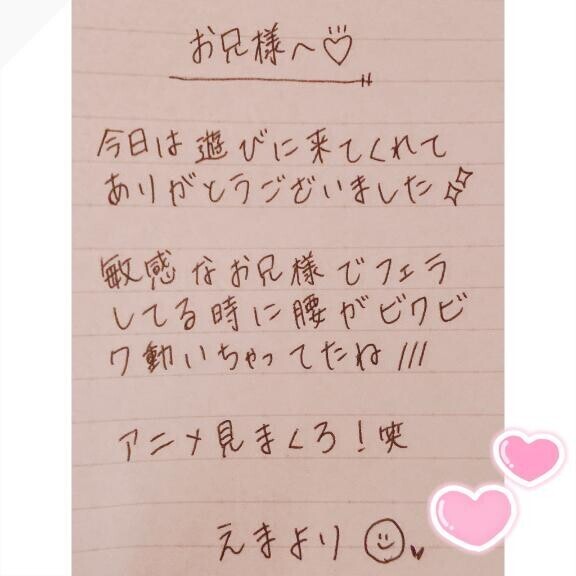 お兄様へ♡
今日は遊びに来てくれて
ありがとうございました✨
敏感なお兄様でフェラ
してる時に腰がビクビ
ク動いちゃってたね///
アニメ見まくろ！笑
えまより☺♥